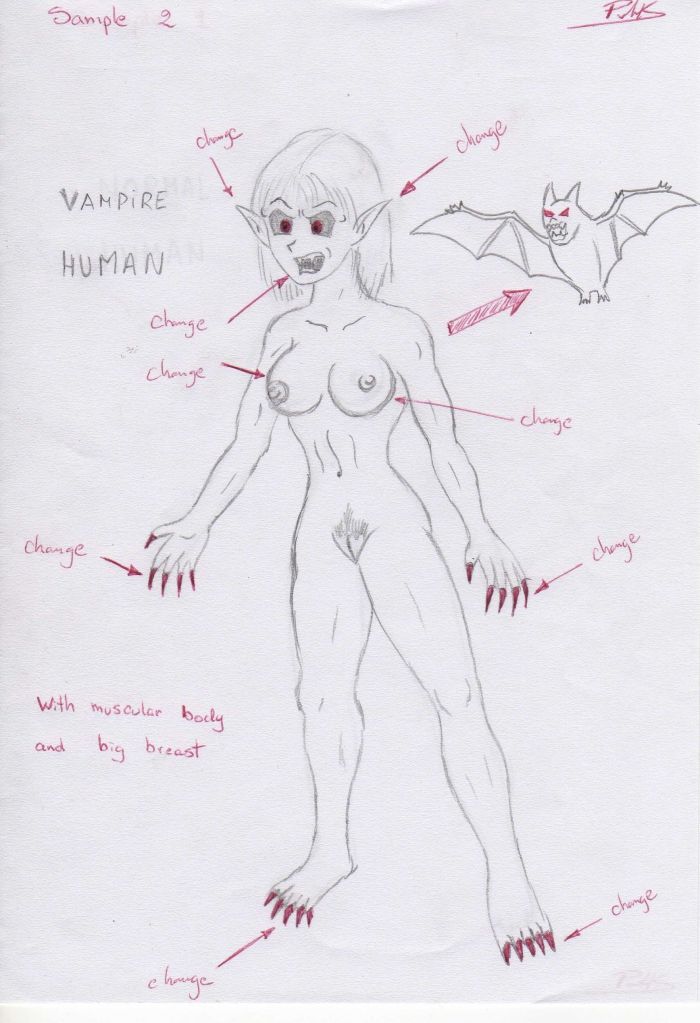 Sample 2
change
change
VAMPIRE
HUMAN
change
change
change
change
change
With muscular body
and big breast
change
change